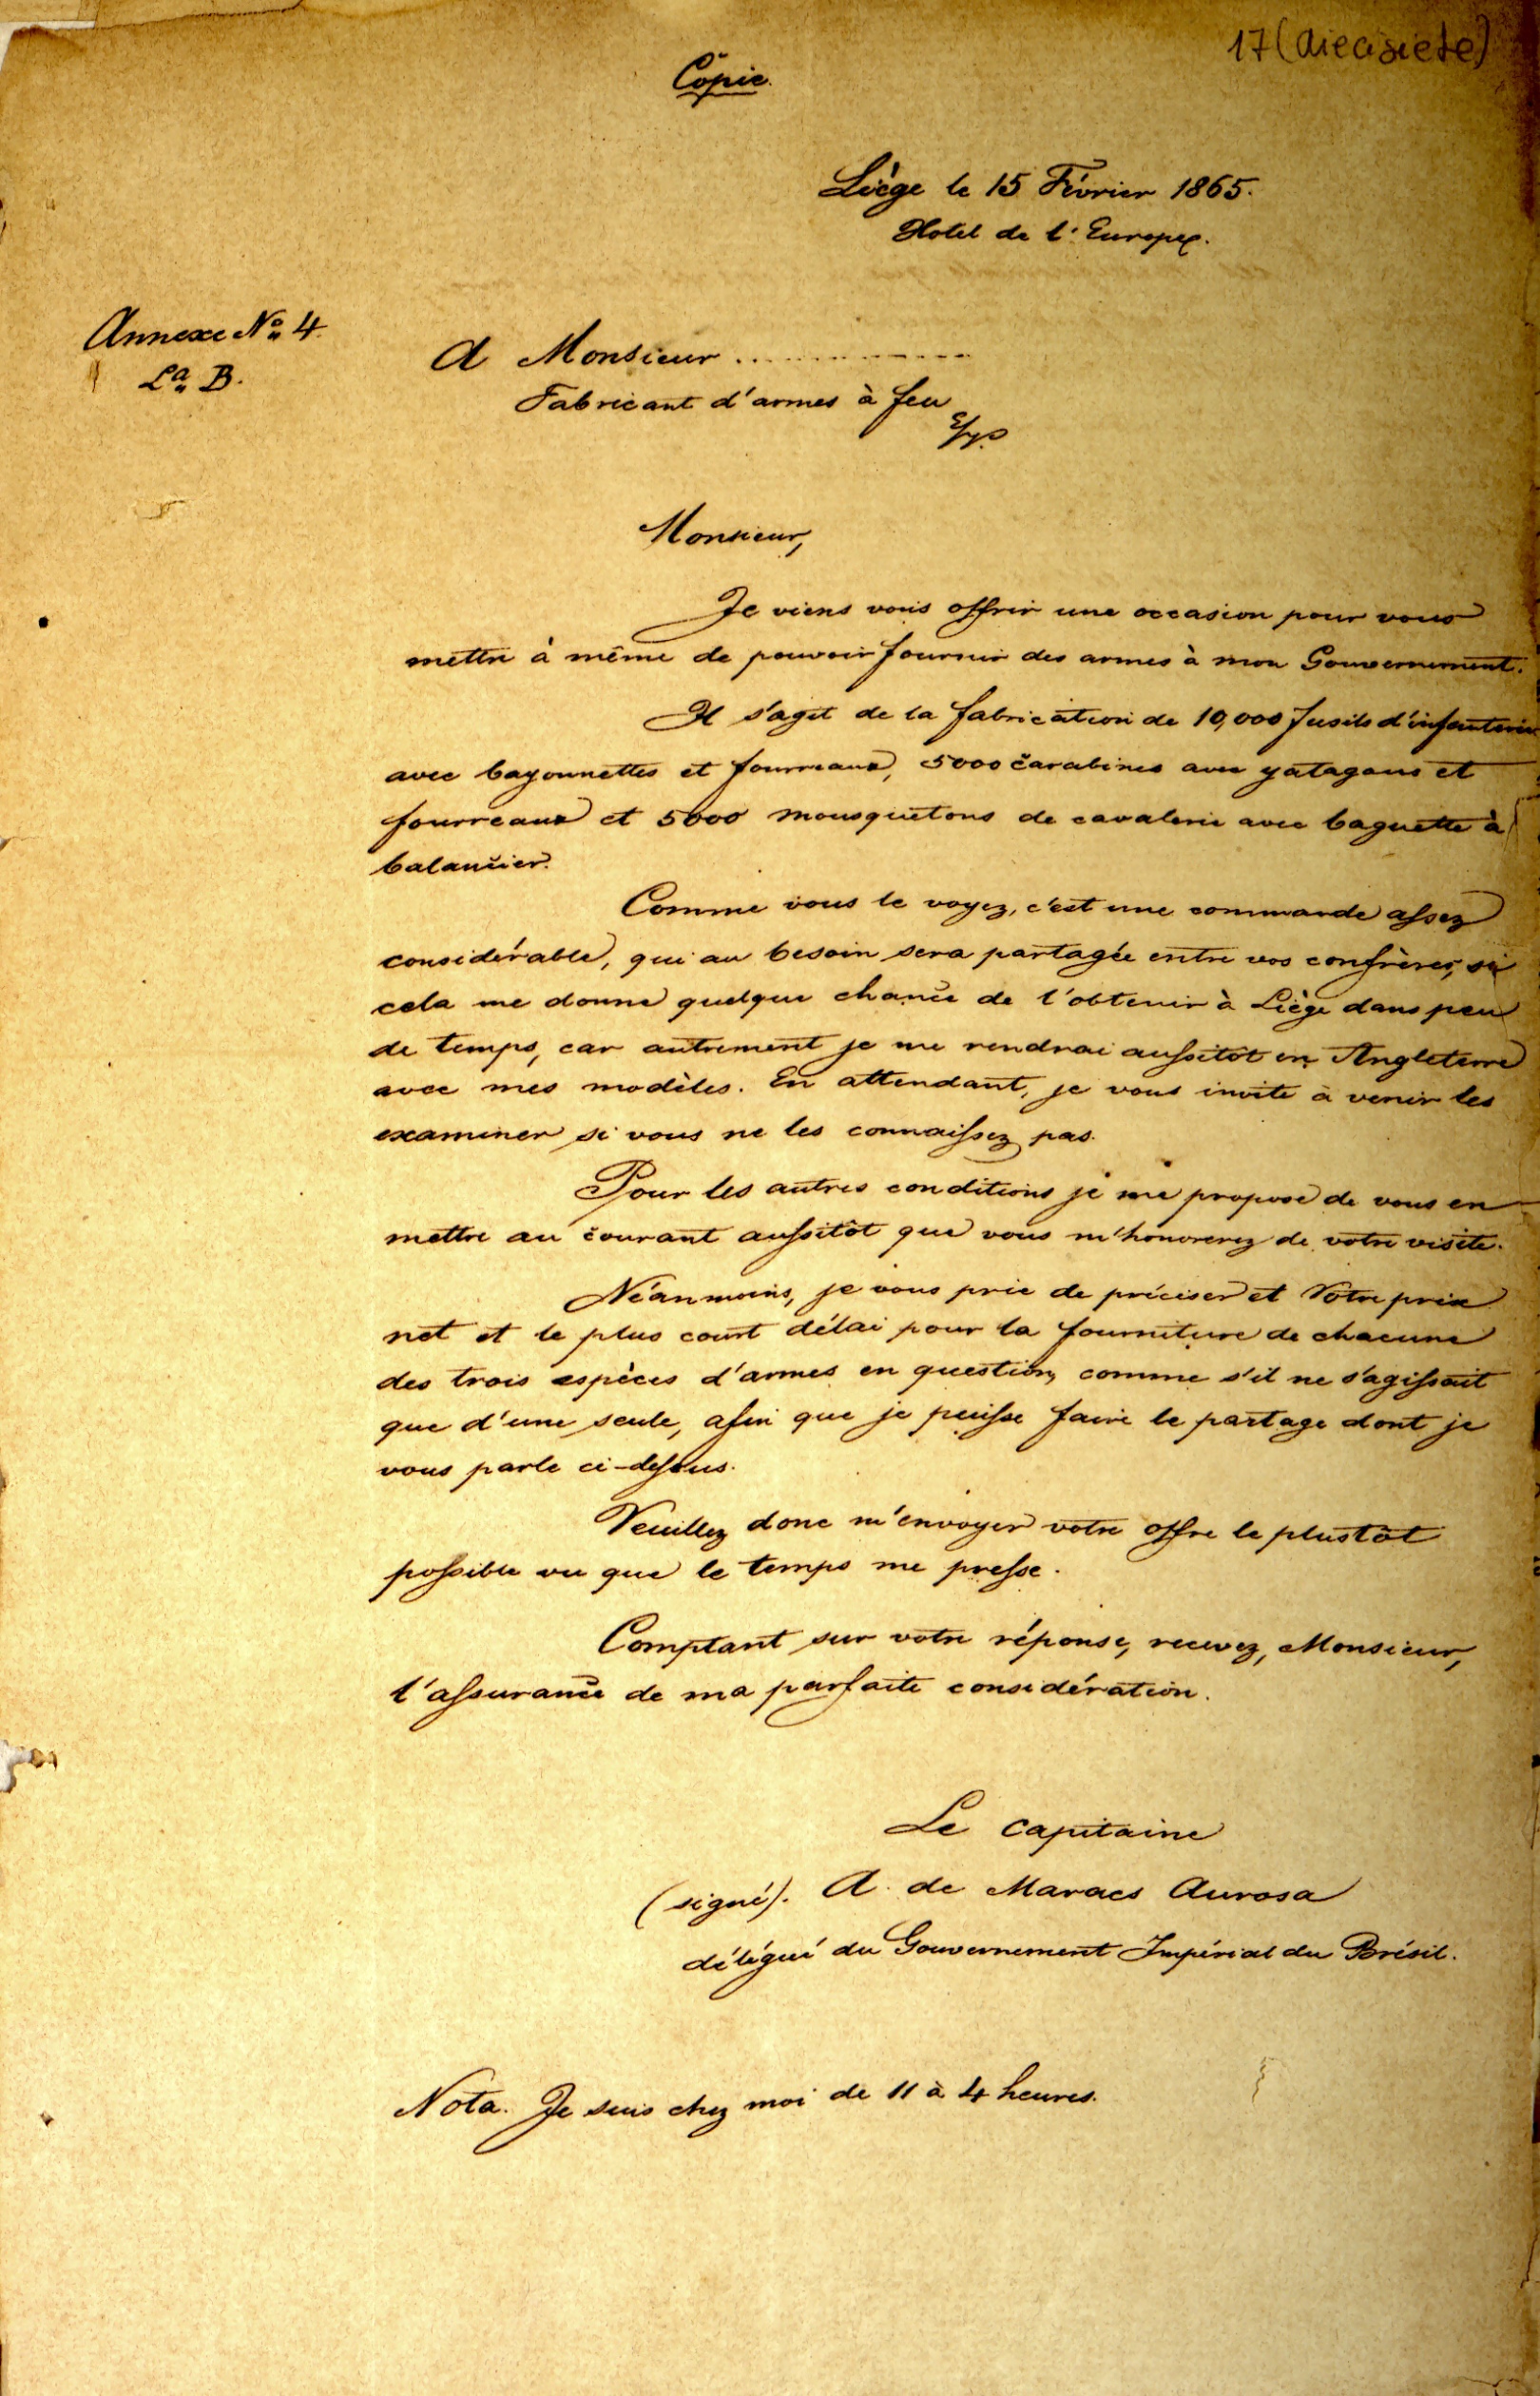 17 (diecisiete)
Copie.
Liège le 15 Février 1865.
Hotel de l'Europe.
Annexe Nº 4.
Lª B.
A Monsieur ..............
Fabricant d'armes à feu
Monsieur,
Je viens vous offrir une occasion pour vous
mettre à même de pouvoir fournir des armes à mon Gouvernement.
Il s'agit de la fabrication de 10,000 fusils d'infanterie
avec bayonnettes et fourreaux, 5000 carabines avec yatagans et
fourreaux et 5000 mousquetons de cavalerie avec baguette à
balancier.
Comme vous le voyez, c'est une commande assez
considérable, qui au besoin sera partagée entre vos confrères, si
cela me donne quelque chance de l'obtenir à Liège dans peu
de temps, car autrement je me rendrai aussitôt en Angleterre
avec mes modèles. En attendant, je vous invite à venir les
examiner si vous ne les connaissez pas.
Pour les autres conditions je me propose de vous en
mettre au courant aussitôt que vous m'honorerez de votre visite.
Néanmoins, je vous prie de préciser et Votre prix
net et le plus court délai pour la fourniture de chacune
des trois espèces d'armes en question, comme s'il ne s'agissait
que d'une seule, afin que je puisse faire le partage dont je
vous parle ci-dessus.
Veuillez donc m'envoyer votre offre le plustôt
possible vu que le temps me presse.
Comptant sur votre réponse, recevez, Monsieur,
l'assurance de ma parfaite considération.
Le Capitaine
(signé). A. de Maraes Aurosa
délégué du Gouvernement Impérial du Brésil.
Nota. Je suis chez moi de 11 à 4 heures.